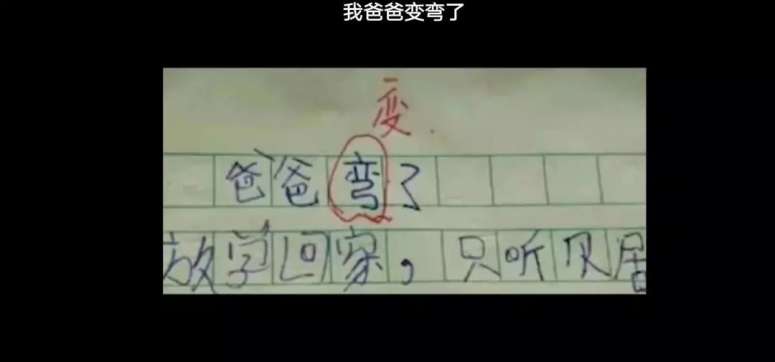 我爸爸变弯了
变.
爸爸弯了
放学回家，只听见居